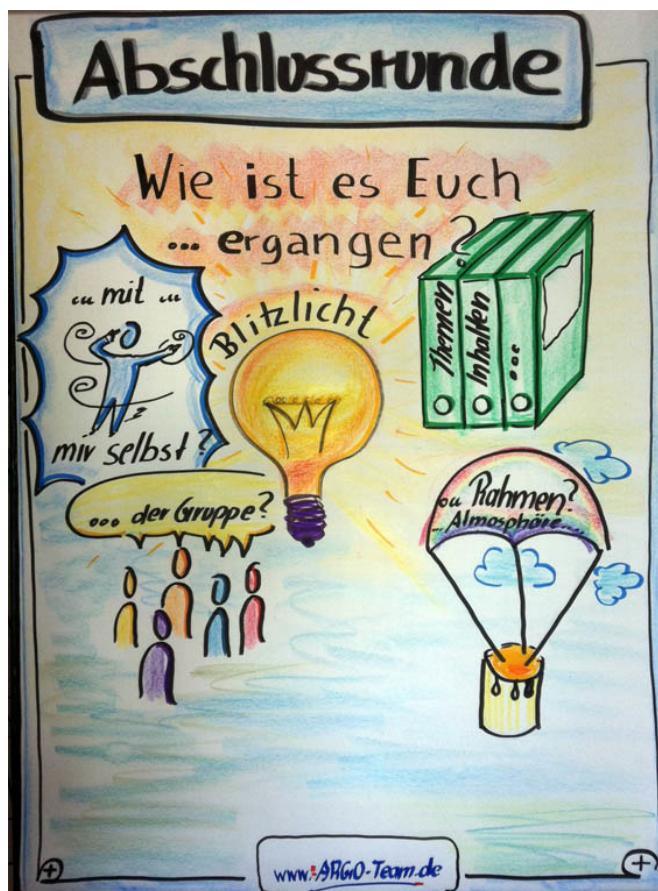 Abschlussrunde
Wie ist es Euch
... ergangen?
... mit ...
mir selbst?
Blitzlicht
Themen
Inhalten
...
... der Gruppe?
... Rahmen?
... Atmosphäre....
www.ARGO-Team.de